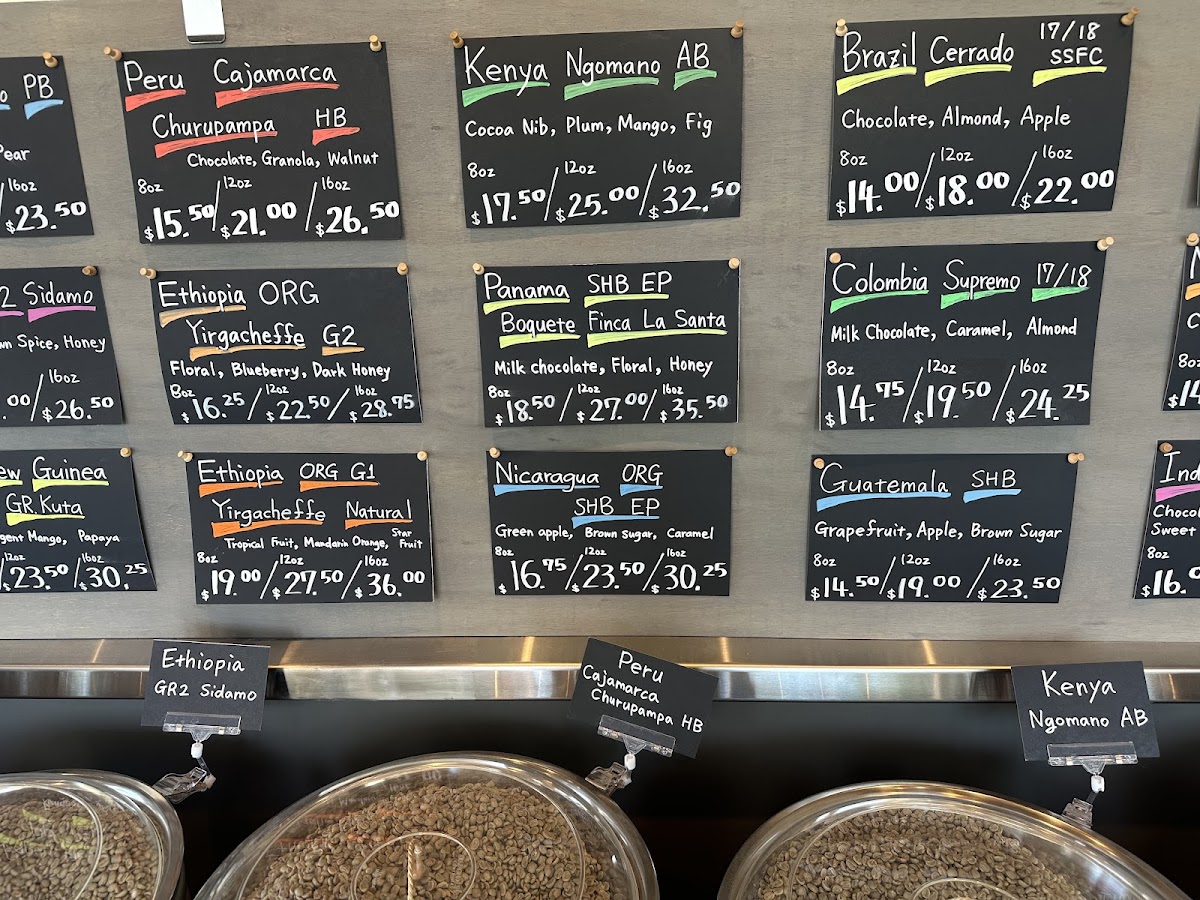 PB
Pear
16oz
$23.50
Peru Cajamarca
Churupampa HB
Chocolate, Granola, Walnut
8oz 12oz 16oz
$15.50/$21.00/$26.50
Kenya Ngomano AB
Cocoa Nib, Plum, Mango, Fig
8oz 12oz 16oz
$17.50/$25.00/$32.50
Brazil Cerrado 17/18 SSFC
Chocolate, Almond, Apple
8oz 12oz 16oz
$14.00/$18.00/$22.00
2 Sidamo
Spice, Honey
16oz
.00/$26.50
Ethiopia ORG
Yirgacheffe G2
Floral, Blueberry, Dark Honey
8oz 12oz 16oz
$16.25/$22.50/$28.75
Panama SHB EP
Boquete Finca La Santa
Milk chocolate, Floral, Honey
8oz 12oz 16oz
$18.50/$27.00/$35.50
Colombia Supremo 17/18
Milk Chocolate, Caramel, Almond
8oz 12oz 16oz
$14.75/$19.50/$24.25
8oz
$14
ew Guinea
GR.Kuta
gent Mango, Papaya
12oz 16oz
$23.50/$30.25
Ethiopia ORG G1
Yirgacheffe Natural
Tropical Fruit, Mandarin Orange, Star Fruit
8oz 12oz 16oz
$19.00/$27.50/$36.00
Nicaragua ORG
SHB EP
Green apple, Brown sugar, Caramel
8oz 12oz 16oz
$16.75/$23.50/$30.25
Guatemala SHB
Grapefruit, Apple, Brown Sugar
8oz 12oz 16oz
$14.50/$19.00/$23.50
Ind
Chocol
Sweet
8oz
$16.0
Ethiopia
GR2 Sidamo
Peru
Cajamarca
Churupampa HB
Kenya
Ngomano AB